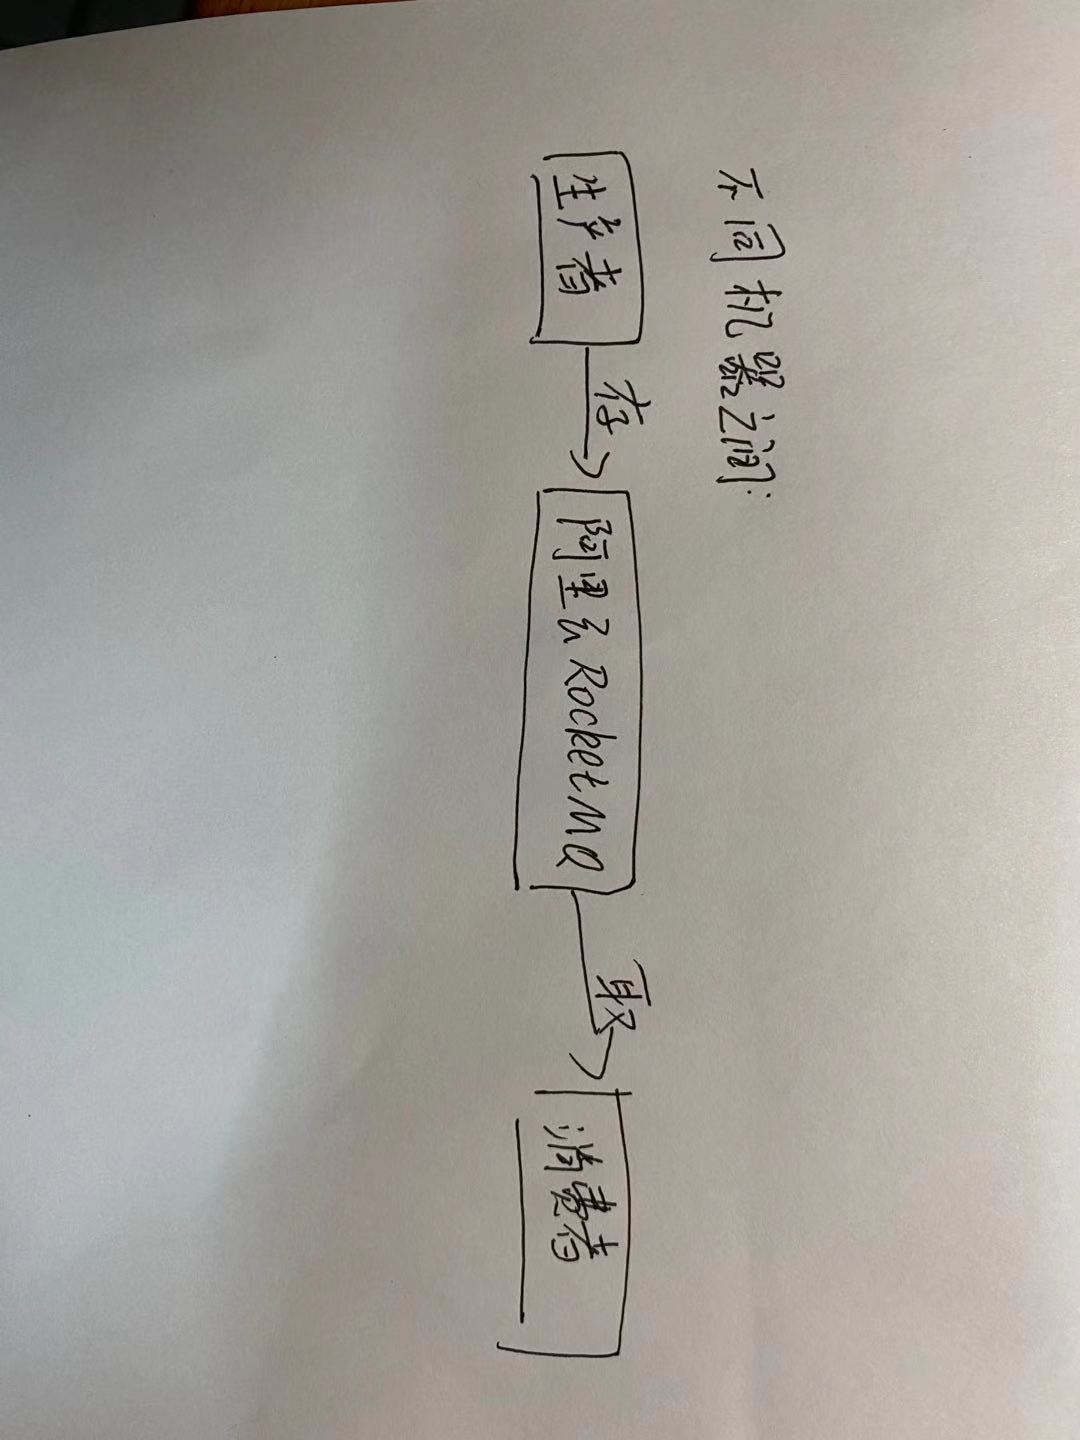 不同机器之间:
生产者
存
阿里云RocketMQ
取
消费者